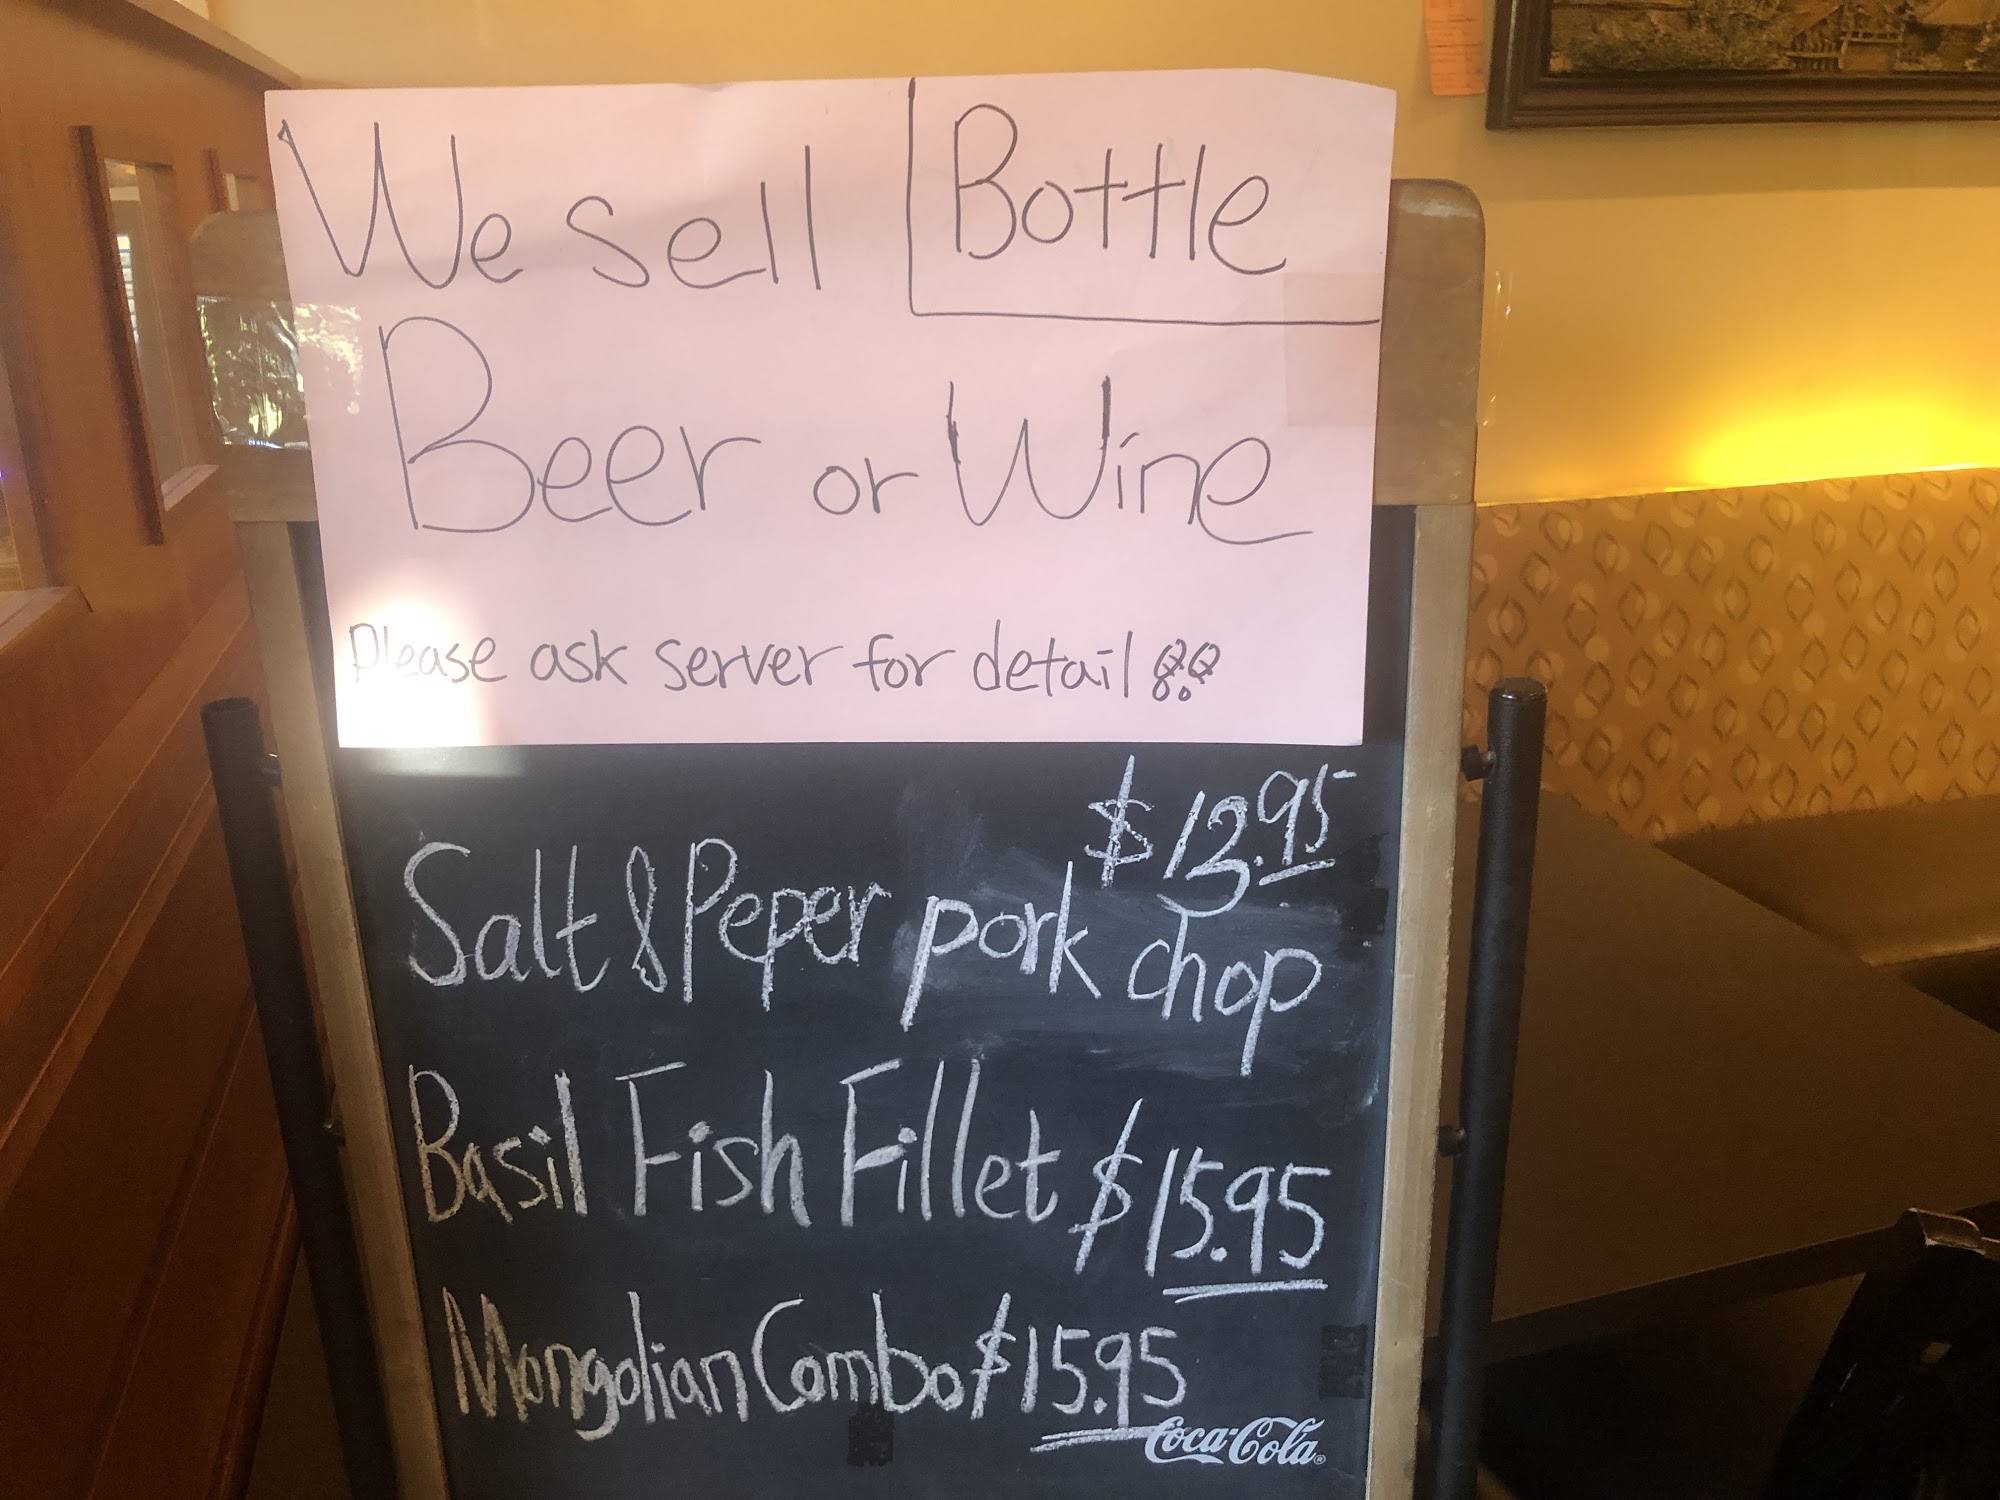 We sell Bottle
Beer or Wine
Please ask server for detail !!
$13.95
Salt & Peper pork chop
Basil Fish Fillet $15.95
Mongolian Combo $15.95
Coca-Cola®